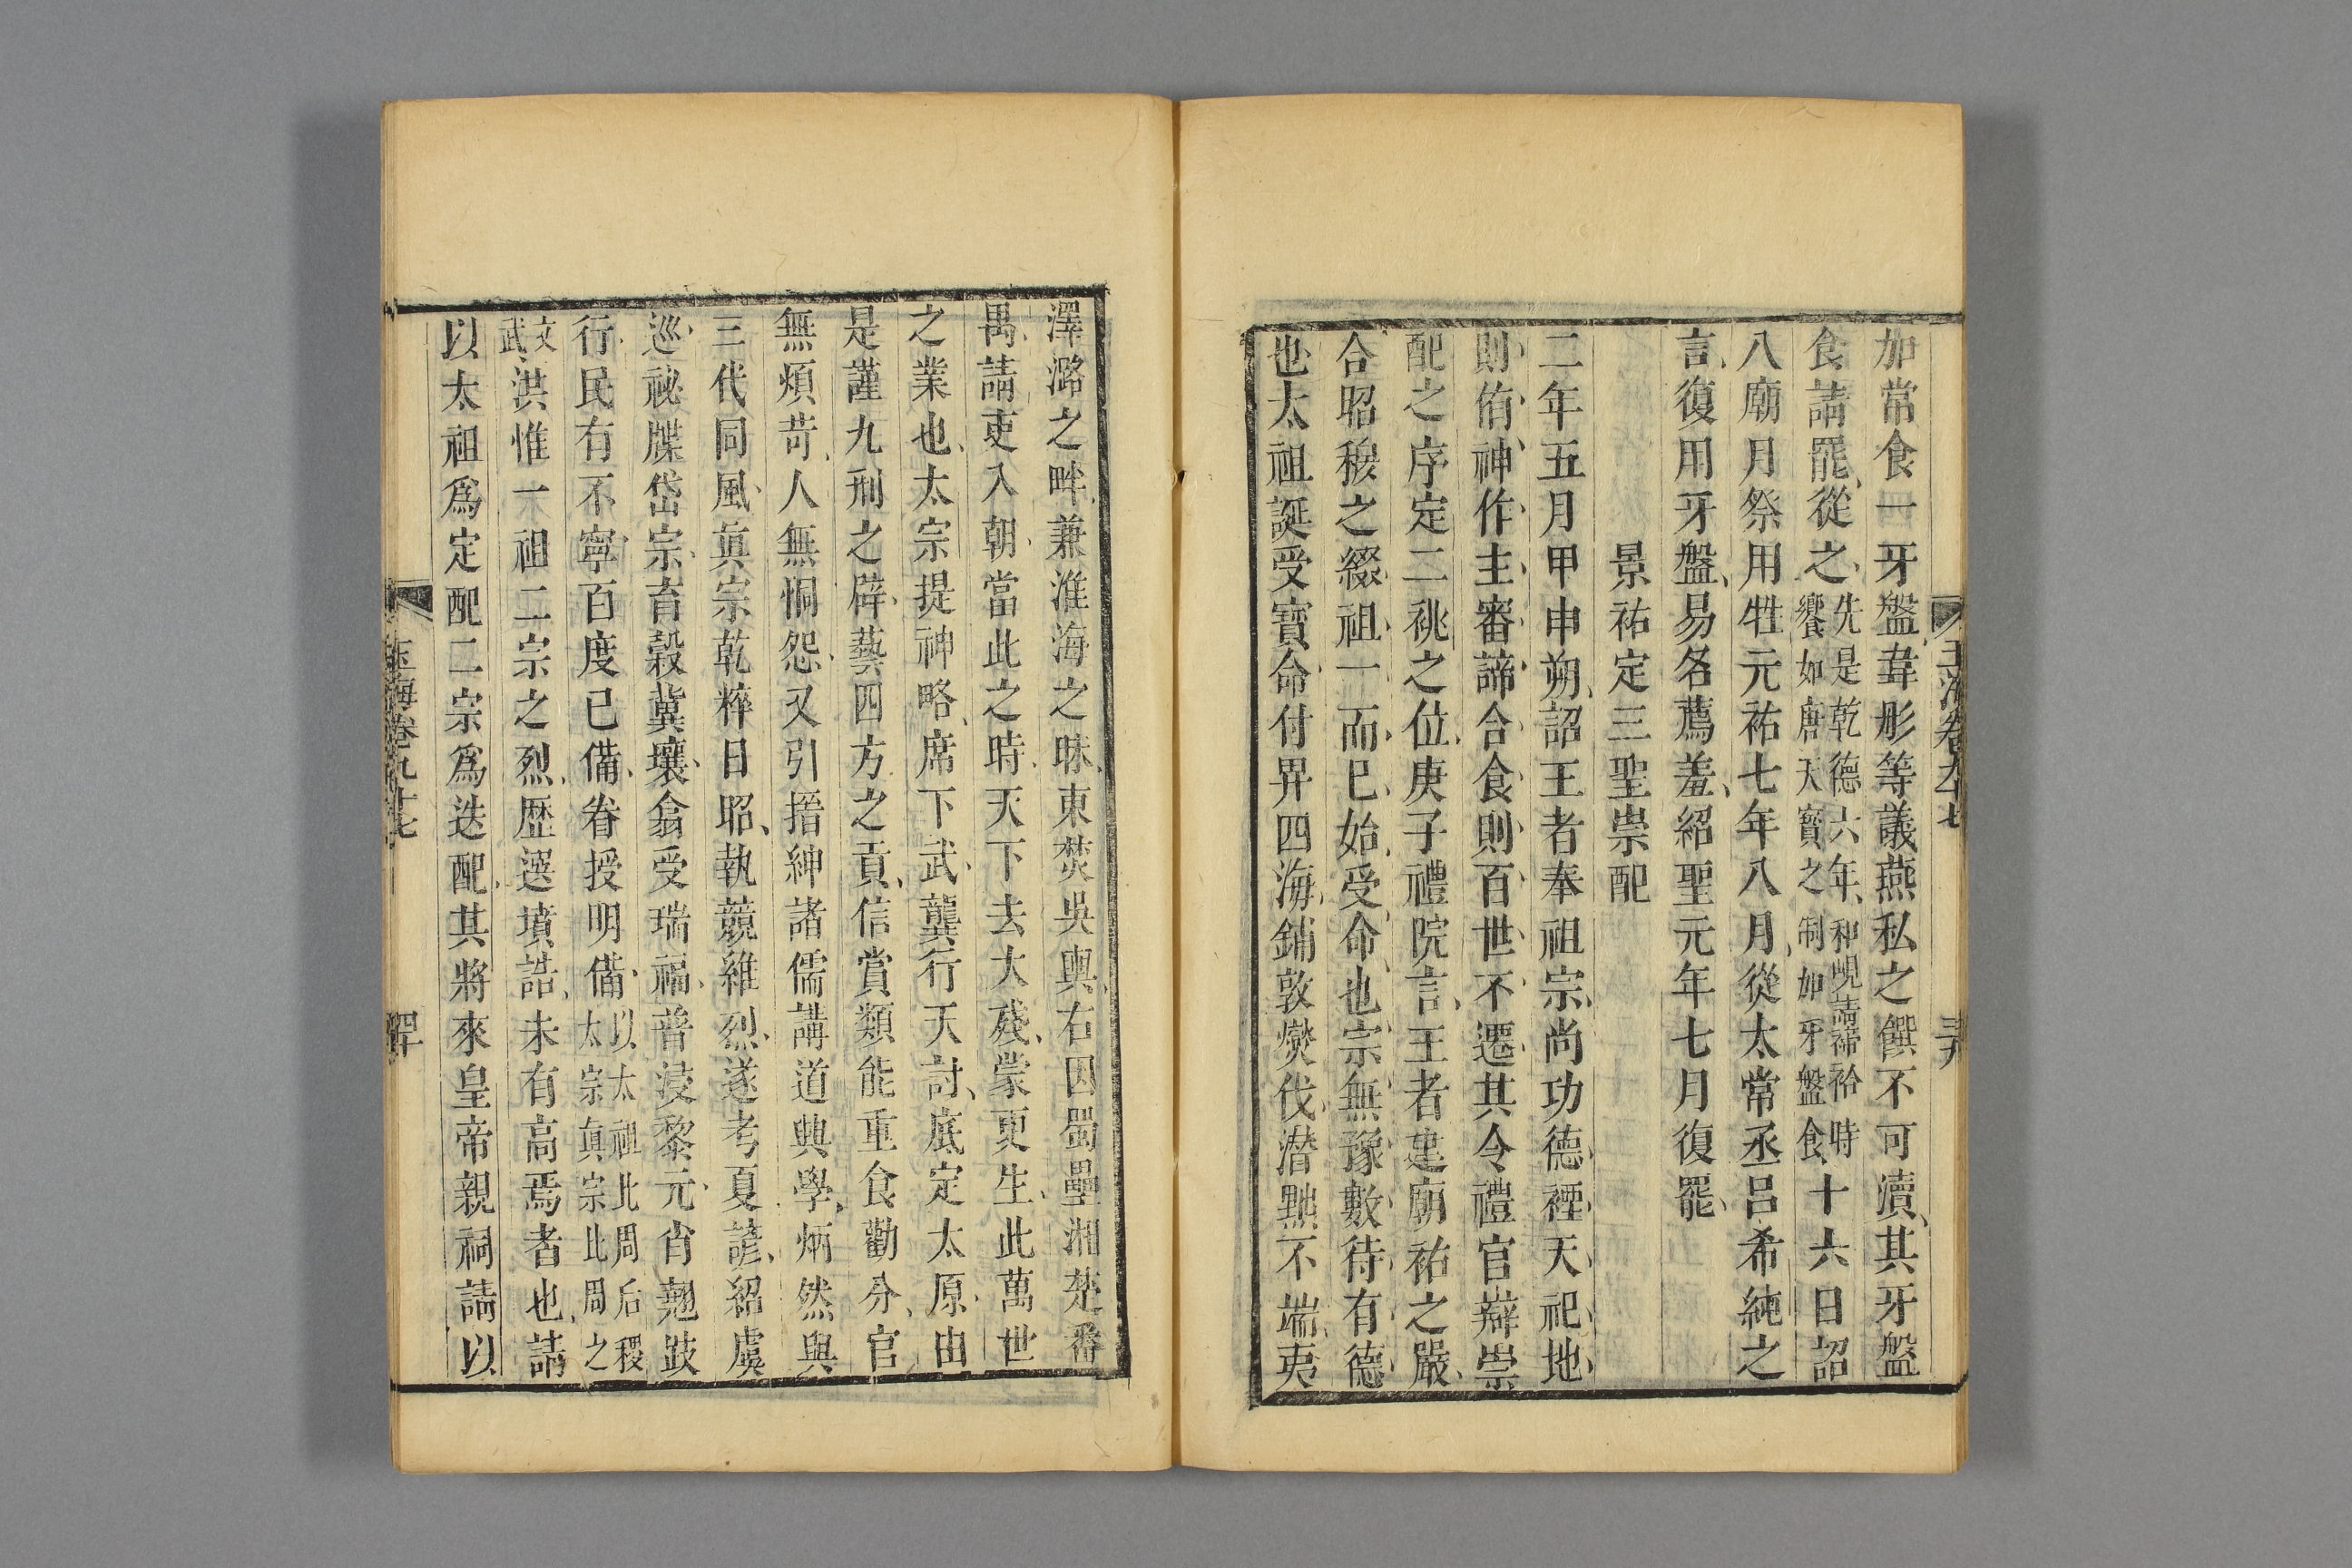 玉海卷九十七
加常食一牙盤韋彤等議燕私之饌不可瀆其牙盤
食請罷從之先是乾德六年和峴請禘祫時
饗如唐天寶之制加牙盤食十六日詔
八廟月祭用牲元祐七年八月從太常丞呂希純之
言復用牙盤易名薦羞紹聖元年七月復罷
景祐定三聖崇配
二年五月甲申朔詔王者奉祖宗尚功德禋天祀地
則侑神作主審諦合食則百世不遷其令禮官辯崇
配之序定二祧之位庚子禮院言王者建廟祐之嚴
合昭穆之綴祖一而已始受命也宗無豫數待有德
也太祖誕受寶命付畀四海鋪敦燮伐潛黜不端夷
澤潞之畔兼淮海之昧東焚吳輿右因蜀壘湘楚番
禺請吏入朝當此之時天下去大殘蒙更生此萬世
之業也太宗提神略席下武龔行天討底定太原由
是謹九刑之辟藝四方之貢信賞類能重食勸分官
無煩苛人無恫怨又引搢紳諸儒講道興學炳然與
三代同風真宗乾粹日昭執競維烈遂考夏諺紹虞
巡祕牒岱宗育穀冀壤翕受瑞福普浸黎元肖翹跂
行民有不寧百度已備眷授明備以太祖比周后稷
太宗真宗比周之
文
武洪惟一祖二宗之烈歷選墳誥未有高焉者也請
以太祖爲定配二宗爲迭配其將來皇帝親祠請以
玉海卷九十七